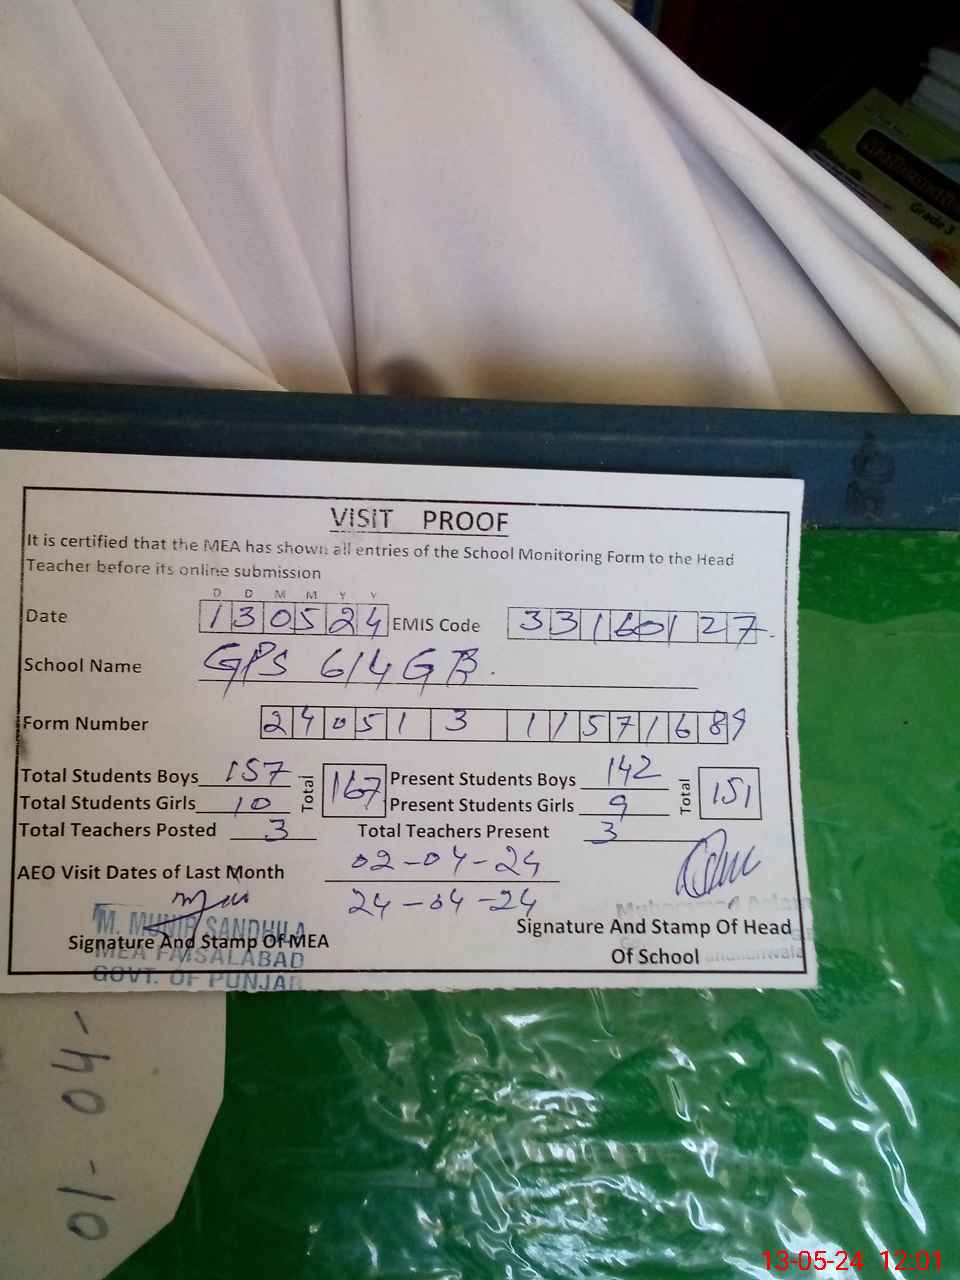 Grade 3
VISIT PROOF
It is certified that the MEA has shown all entries of the School Monitoring Form to the Head
Teacher before its online submission
D D M M Y Y
Date 130524 EMIS Code 33160127
School Name GPS 614 GB.
Form Number 24051311571689
Total Students Boys 157 Total 167 Present Students Boys 142 Total 151
Total Students Girls 10 Present Students Girls 9
Total Teachers Posted 3 Total Teachers Present 3
AEO Visit Dates of Last Month 02-04-24
24-04-24
M. MUNIR SANDHILA
Signature And Stamp Of MEA Signature And Stamp Of Head
MEA FAISALABAD Of School
GOVT. OF PUNJAB
01-04-
13-05-24 12:01